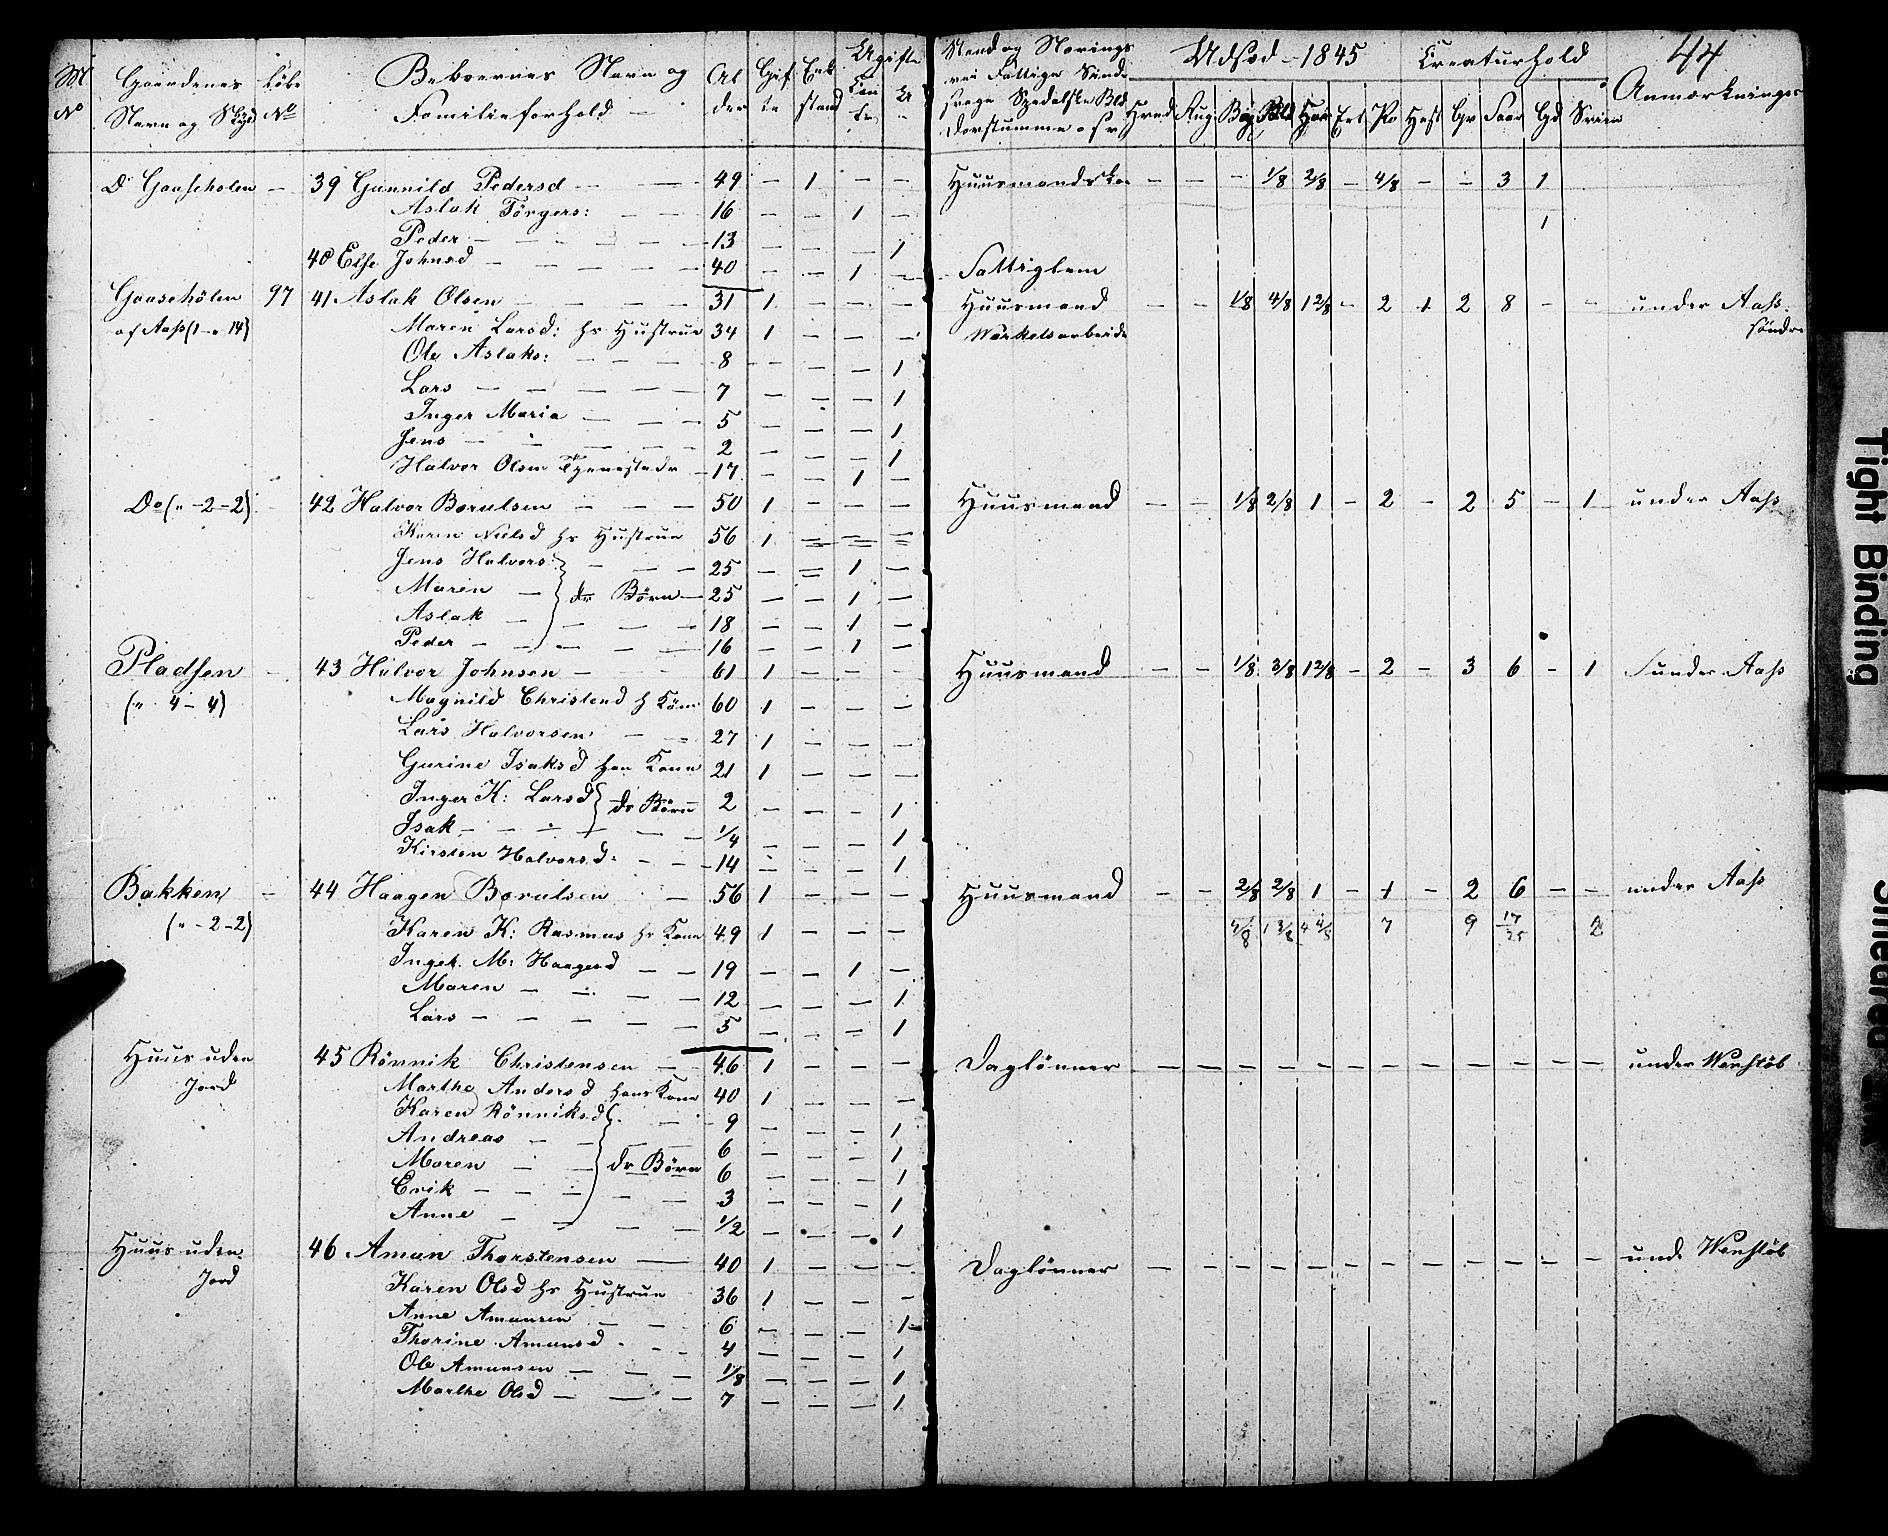 M No
Gaardenes Navn og Skyld
Løbe No
Beboernes Navn og Familieforhold
Al der
Gif te
Enk stand
Ugifte
Kon fr
U
Stand og Nærings
vei Fattige Sinds
svage Spedalske Bld
Døvstumme o s v
Udsæd 1845
Hved Rug Byg Bld Hav Ert Po
Creaturhold
Hest Qv Faar Gd Sviin
44
Anmærkninger
Do Gaaseholen - 39 Gunnild Pedersd - - 49 - 1 - - Huusmandsko - - - 1/8 2/8 - 4/8 - - 3 1
Aslak Törgers: - - 16 - - 1 -
Peder - - - 13 - - - 1 1
40 Else Johnsd - - - 40 - - 1 - Fattiglem
Gaasehölen 97 41 Aslak Olsen - - - 31 1 - - - Huusmand - - 1/8 4/8 1 2/8 - 2 1 2 8 - - under Aass
af Aass (1 - 14) Maren Larsd: hs Hustrue 34 1 - - - Værkelsarbeide søndre
Ole Aslaks: - - - 8 - - - 1
Lars - - - 7 - - - 1
Inger Maria - - 5 - - - 1
Jens - - - 2 - - - 1
Halvor Olsen Tjenestedr - 17 - - 1 -
Do (" - 2 - 2) 42 Halvor Borulsen - - - 50 1 - - - Huusmand - - 1/8 2/8 1 - 2 - 2 5 - 1 under Aass
Karen Nielsd hs Hustrue 56 1 - - -
Jens Halvors: - - - 25 - - 1 -
Maren - dr Børn - 25 - - 1 -
Aslak - - - 18 - - 1 -
Peder - - - 16 - - 1 -
Pladsen - 43 Halvor Johnsen - - 61 1 - - - Huusmand - - 1/8 3/8 1 2/8 - 2 - 3 6 - 1 under Aass
(" 4 - 4) Magnild Christend h Kone 60 1 - - -
Lars Halvorsen - - 27 1 - - -
Gurine Isaksd han Kone 21 1 - - -
Inger K: Larsd dr Børn 2 - - - 1
Isak - - - 1/4 - - - 1
Kirsten Halvorsd: - - 14 - - - 1
Bakken - 44 Haagen Borulsen - 56 1 - - - Huusmand - - 2/8 2/8 1 - 1 - 2 6 - - under Aass
(" - 2 - 2) Karen K: Rasmus hs Kone 49 1 - - - 1 3/8 4 4/8 7 9 17/25 2
Inger M: Haagensd - - 19 - - 1 -
Maren - - - 12 - - - 1
Lars - - - 5 - - - 1
Huus uden Jord 45 Rönnik Christensen - - 46 1 - - - Daglönner - - - - - - - - - - - - under Wenstöb
Marthe Andersd hans Kone 40 1 - - -
Karen Rönniksd - - 9 - - - 1
Andreas - - 6 - - - 1
Maren - - dr Børn 6 - - - 1
Erik - - - 3 - - - 1
Anne - - - 1/2 - - - 1
Huus uden Jord 46 Aman Thorstensen - 40 1 - - - Daglönner - - - - - - - - - - - - unde Wenstöb
Karen Olsd hs Hustrue 36 1 - - -
Anne Amunsen - - - 6 - - - 1
Thorine Amunsd - - - 4 - - - 1
Ole Amunsen - - - 1/8 - - - 1
Marthe Olsd - - - 7 - - - 1
Tight Binding